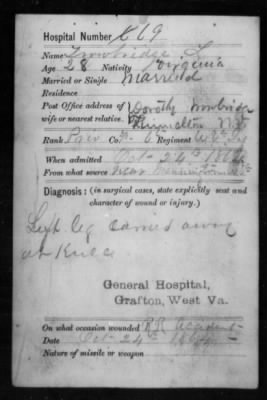 Hospital Number 619
Name Trowbridge, L
Age 28 Nativity Virginia
Married or Single Married
Residence
Post Office address of Dorothy
wife or nearest relative.
Rank Priv Co. Regiment
When admitted Oct 24th 1864
From what source Near
Diagnosis: (in surgical cases, state explicitly seat and
character of wound or injury.)
Left leg carried away
at Knee
General Hospital,
Grafton, West Va.
On what occasion wounded RR Accident
Date Oct 24th 1864
Nature of missile or weapon